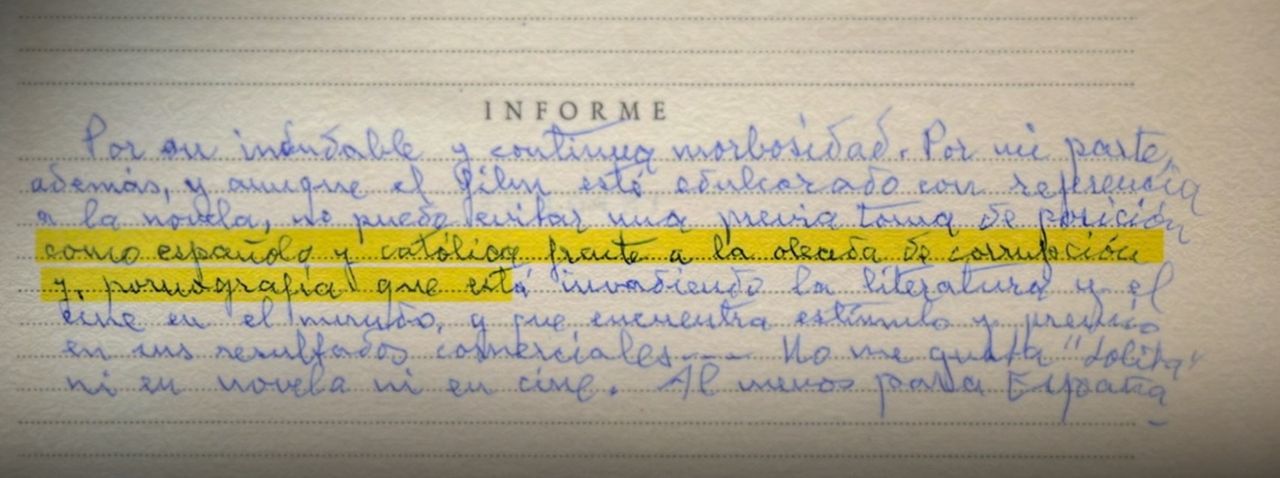 INFORME
Por su indudable y continua morbosidad. Por mi parte,
además, y aunque el film esté edulcorado con referencia
a la novela, no puedo evitar una previa toma de posición
como español y católico frente a la oleada de corrupción
y pornografía que está invadiendo la literatura y el
cine en el mundo, y que encuentra estímulo y premio
en sus resultados comerciales--- No me gusta "Lolita"
ni en novela ni en cine. Al menos para España